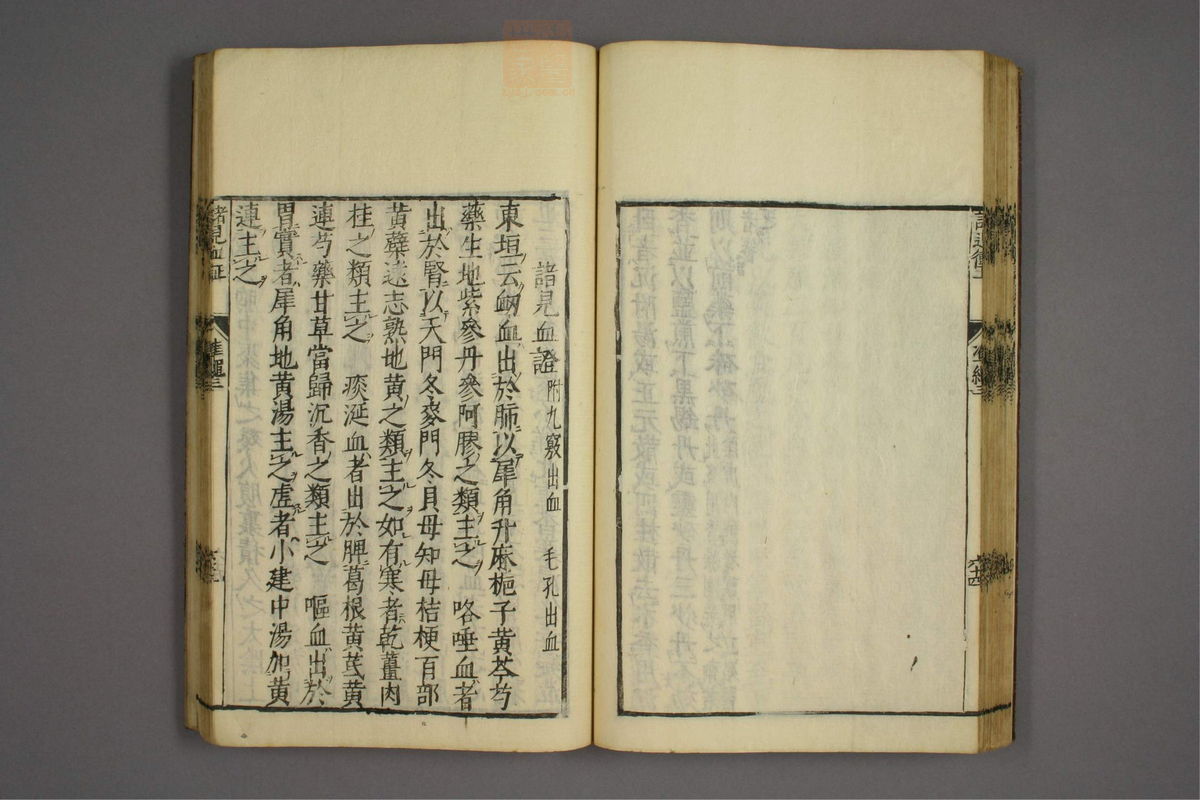 諸見血證 附九竅出血 毛孔出血
東垣云衂血出於肺以犀角升麻梔子黄芩芍
藥生地紫參丹參阿膠之類主之 咯唾血者
出於腎以天門冬麥門冬貝母知母桔梗百部
黄蘗遠志熟地黄之類主之如有寒者乾薑肉
桂之類主之 痰涎血者出於脾葛根黄芪黄
連芍藥甘草當歸沉香之類主之 嘔血出於
胃實者犀角地黄湯主之虚者小建中湯加黄
連主之
諸見血証
準繩三